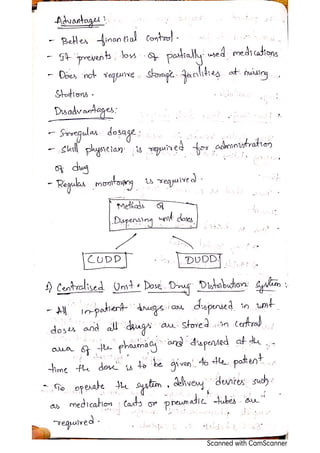 Advantages :
- Better financial control.
- It prevents loss of partially used medications
- Does not require storage facilities at nursing
Stations.
Disadvantages:
- Irregular dosage.
- Skill physician is required for administration
of drug
- Regular monitoring is required.
Methods of
Dispensing unit doses
CUDD
DUDD
1) Centralised Unit-Dose Drug Distribution System:
- All in-patient drugs are dispensed in unit
doses and all drugs are stored in central
area of the pharmacy and dispensed at the
time the dose is to be given to the patient
- To operate the system, delivery devices such
as medication carts or pneumatic tubes are
required.
Scanned with CamScanner